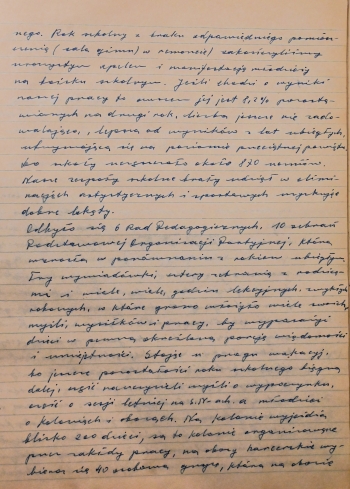 nego. Rok szkolny z braku odpowiedniego pomiesz-
czenia (sala gimn. w remoncie) zakończyliśmy
uroczystym apelem i manifestacją młodzieży
na boisku szkolnym. Jeśli chodzi o wyniki
naszej pracy to owocem jej jest 8,2% pozosta-
wionych na drugi rok, liczba jeszcze nie zado-
walająca, lepsza od wyników z lat ubiegłych,
utrzymująca się na poziomie przeciętnej powiatu.
Do szkoły uczęszczało około 870 uczniów.
Nasze zespoły szkolne brały udział w elimi-
nacjach artystycznych i sportowych uzyskując
dobre lokaty.
Odbyło się 6 Rad Pedagogicznych, 10 zebrań
Podstawowej Organizacji Partyjnej, która
wzrosła w porównaniu z rokiem ubiegłym,
trzy wywiadówki, zebrania z rodzica-
mi i wiele, wiele godzin lekcyjnych,
w które grono włożyło wiele
myśli, wysiłków i pracy, by wyposażyć
dzieci w pewną określoną porcję wiadomości
i umiejętności. Stojąc u progu wakacji,
bo jeszcze pozostałości roku szkolnego biegną
dalej, część nauczycieli myśli o wypoczynku,
część o sesji letniej na S.N-ach, a młodzież
o koloniach i obozach. Na kolonie wyjeżdża
blisko 200 dzieci, są to kolonie organizowane
przez zakłady pracy, na obozy harcerskie wy-
biera się 40 osobowa grupa, która na obozie